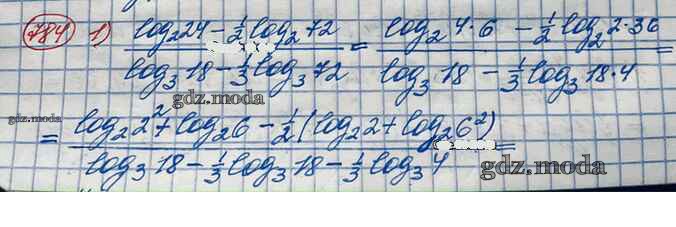 784 1) (log₂24 - ½log₂72)/(log₃18 - ⅓log₃72) = (log₂4·6 - ½log₂2·36)/(log₃18 - ⅓log₃18·4) =
gdz.moda
gdz.moda = (log₂2² + log₂6 - ½(log₂2 + log₂6²))/(log₃18 - ⅓log₃18 - ⅓log₃4) =
gdz.moda